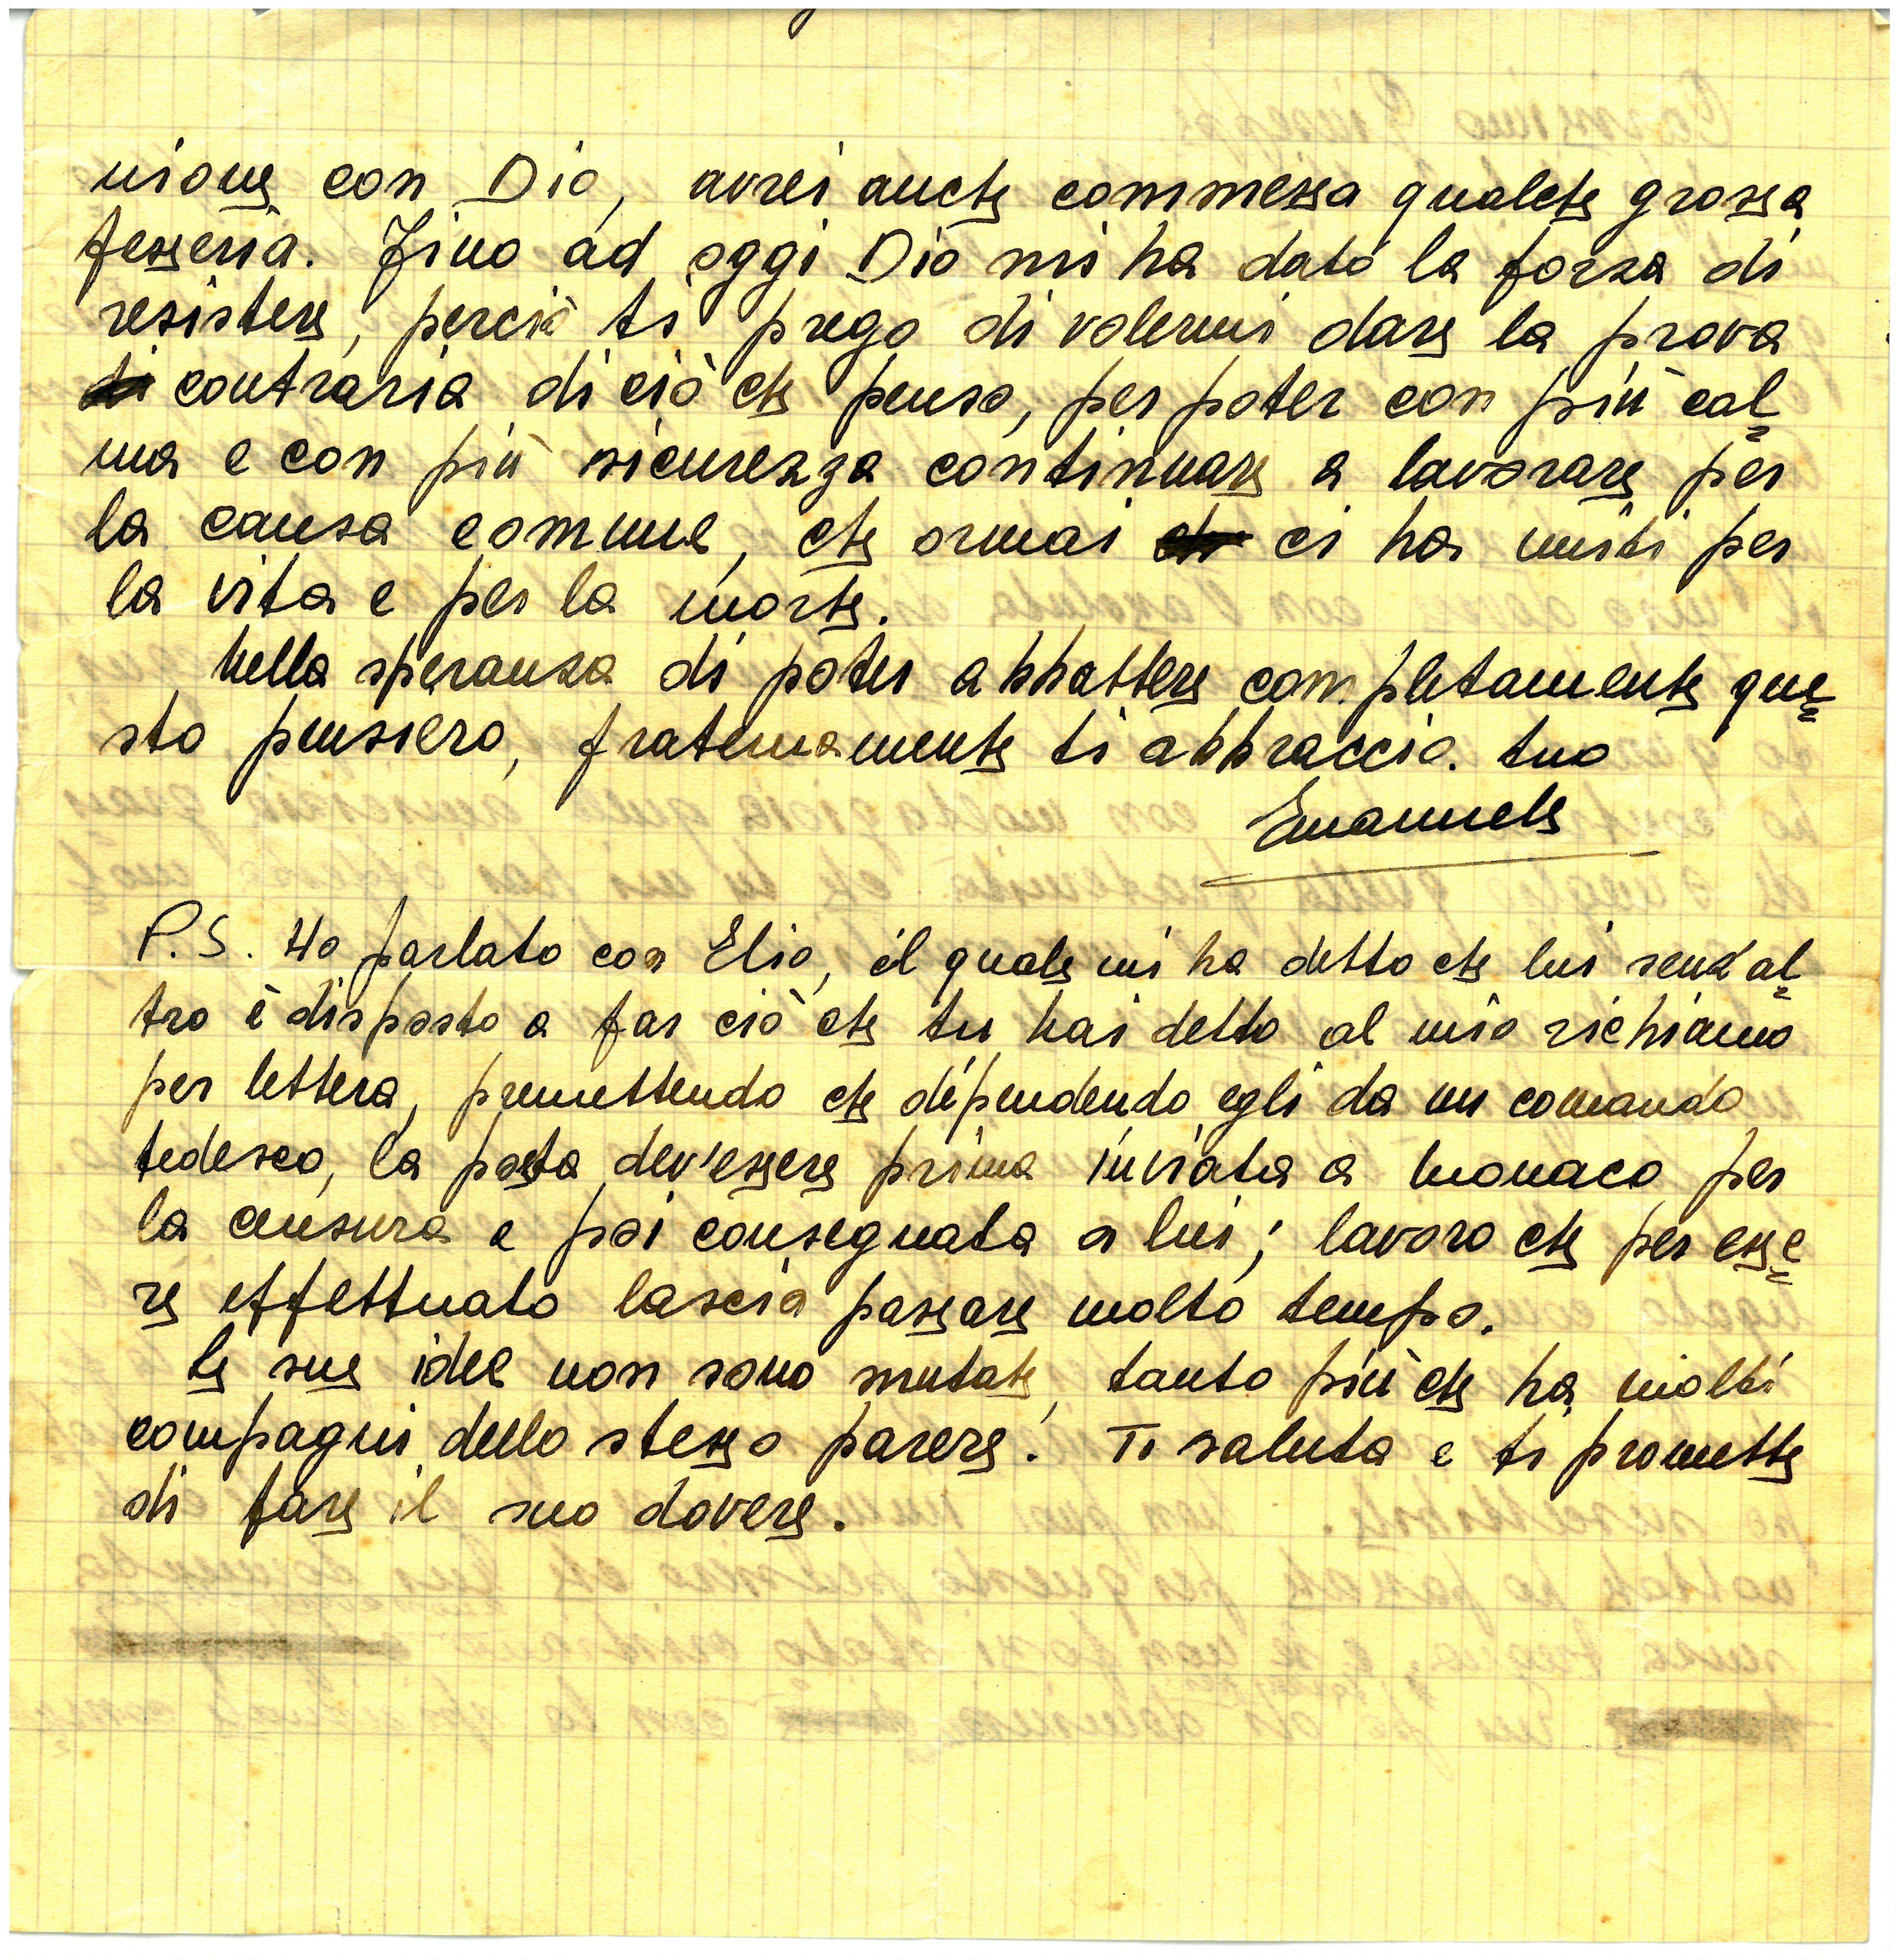 nione con Dio, avrei anche commessa qualche grossa
fesseria. Fino ad oggi Dio mi ha dato la forza di
resistere, perciò ti prego di volermi dare la prova
di contraria di ciò che penso, per poter con più cal=
ma e con più sicurezza continuare a lavorare per
la causa comune, che ormai ci ha uniti per
la vita e per la morte.
Nella speranza di poter abbattere completamente que=
sto pensiero, fraternamente ti abbraccio. tuo
Emanuele
P.S. Ho parlato con Elio, il quale mi ha detto che lui senz'al=
tro è disposto a far ciò che tu hai detto al mio richiamo
per lettera, premettendo che dipendendo egli da un comando
tedesco, la posta dev'essere prima inviata a Monaco per
la censura e poi consegnata a lui; lavoro che per esse=
re effettuato lascia passare molto tempo.
Le sue idee non sono mutate, tanto più che ha molti
compagni dello stesso parere. Ti saluta e ti promette
di fare il suo dovere.